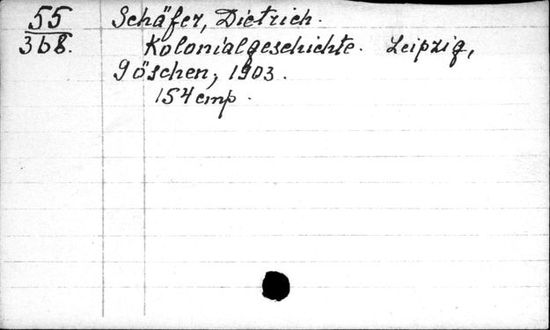 55 Schäfer, Dietrich.
368. Kolonialgeschichte. Leipzig,
Göschen, 1903.
154 стр.